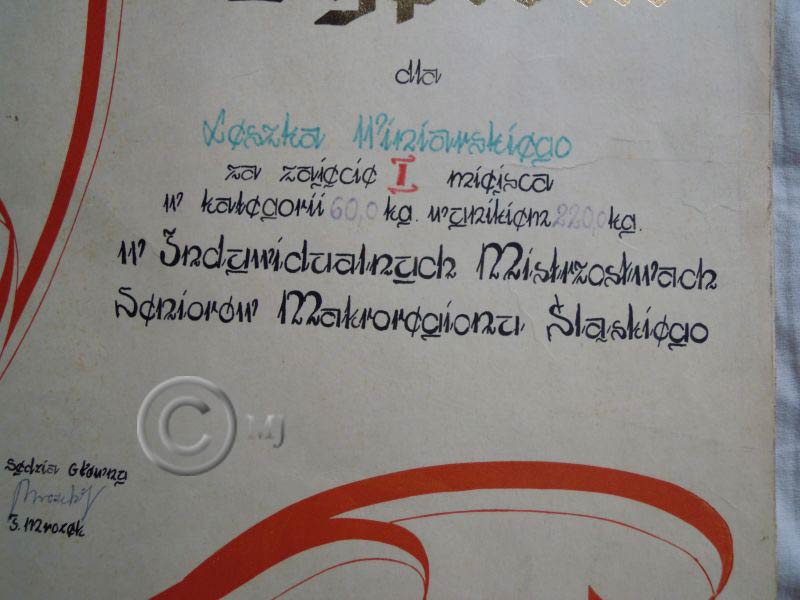 Dyplom
dla
Leszka Winiarskiego
za zajęcie I miejsca
w kategorii 60,0 kg. wynikiem 220,0 kg.
w Indywidualnych Mistrzostwach
Seniorów Makroregionu Śląskiego
© MJ
Sędzia Główny
J. Mrozek